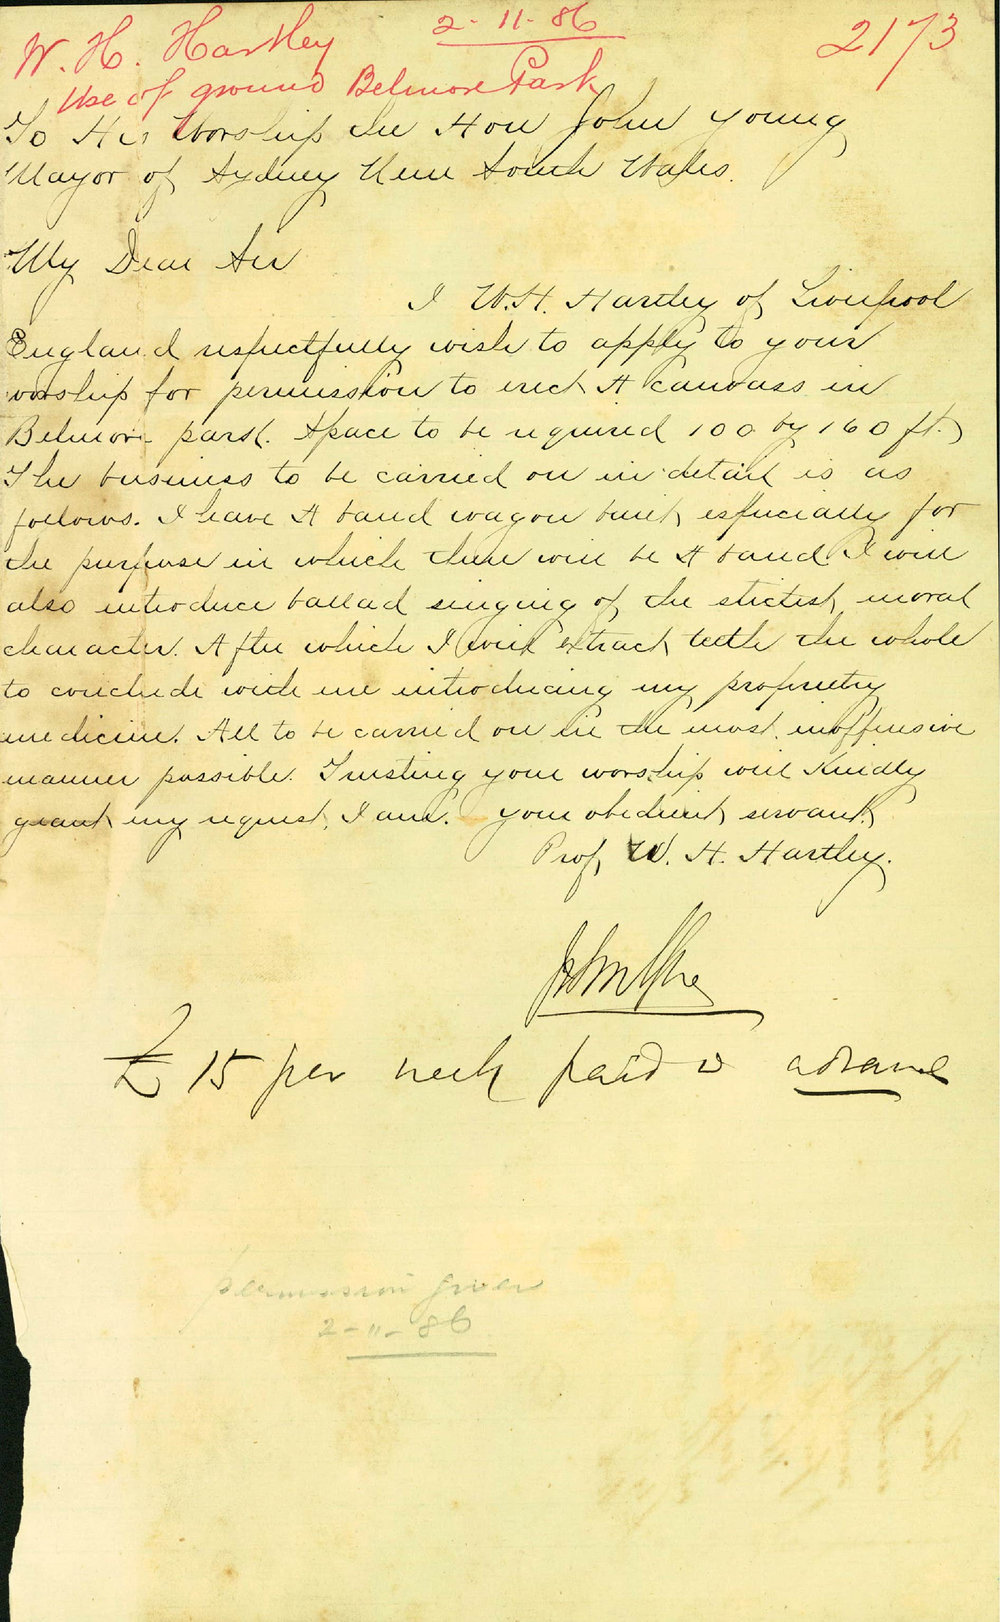 W. H. Hartley
2-11-86
2173
Use of ground Belmore Park
To His Worship the Hon John Young
Mayor of Sydney New South Wales.
My Dear Sir
I W.H. Hartley of Liverpool
England respectfully wish to apply to your
worship for permission to erect A canvass in
Belmore park. Space to be required 100 by 160 ft.
The business to be carried on in detail is as
follows. I have A band wagon built especially for
the purpose in which there will be A band I will
also introduce ballad singing of the stictest moral
character. After which I will extract teeth the whole
to conclude with me introducing my proprietry
medicine. All to be carried on in the most inoffensive
manner possible. Trusting your worship will Kindly
grant my request, I am. your obedient servant.
Prof, W. H. Hartley.
£15 per week paid in advance
permission given
2-11-86